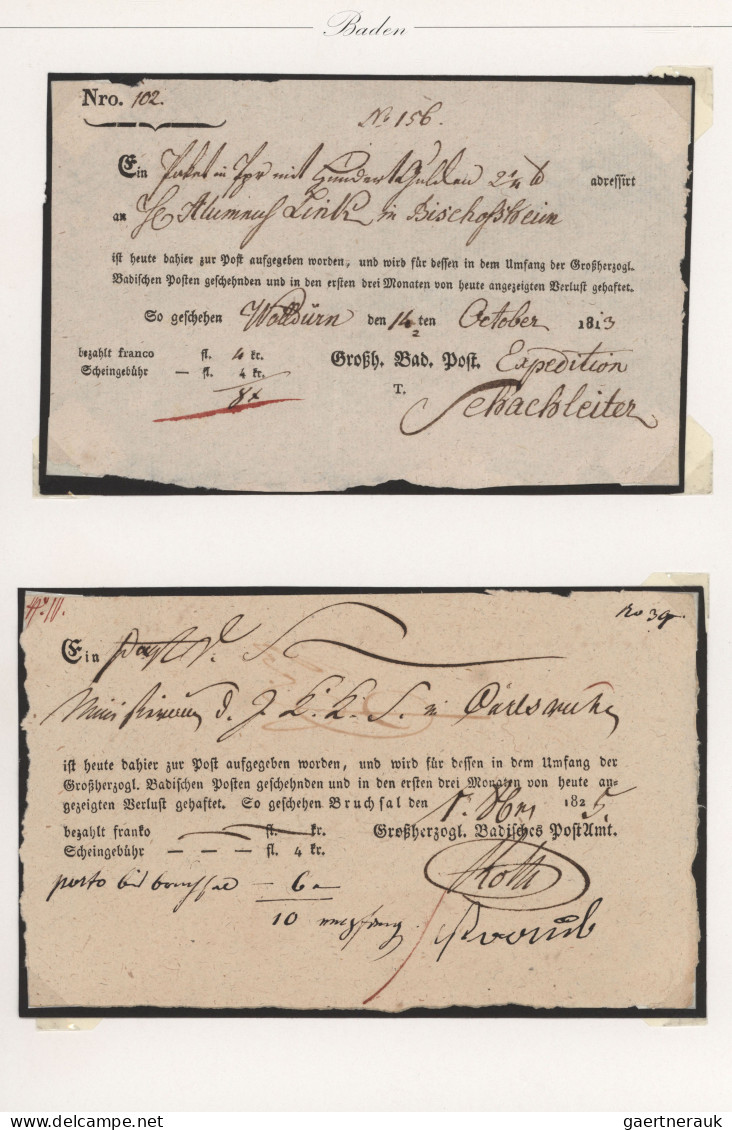 Baden
Nro. 102.
No 156.
Ein Paket in Ppr mit Hundert Gulden 2 1/4 ℔ adressirt
an H Alumnus Link in Bischofsheim
ist heute dahier zur Post aufgegeben worden, und wird für dessen in dem Umfang der Großherzogl.
Badischen Posten geschehnden und in den ersten drei Monaten von heute angezeigten Verlust gehaftet.
So geschehen Walldürn den 14ten October 1813
bezahlt franco fl. 4 kr. Großh. Bad. Post. Expedition
Scheingebühr — fl. 4 kr. T. Schachleiter
8 x
No 39
Ein
Ministerium d. J. K. K. S. in Carlsruhe
ist heute dahier zur Post aufgegeben worden, und wird für dessen in dem Umfang der
Großherzogl. Badischen Posten geschehnden und in den ersten drei Monaten von heute an-
gezeigten Verlust gehaftet. So geschehen Bruchsal den 1. 1825
bezahlt franko fl. kr. Großherzogl. Badisches PostAmt.
Scheingebühr — — — fl. 4 kr.
porto bis bruchsal — 6
10
gaertnerauk